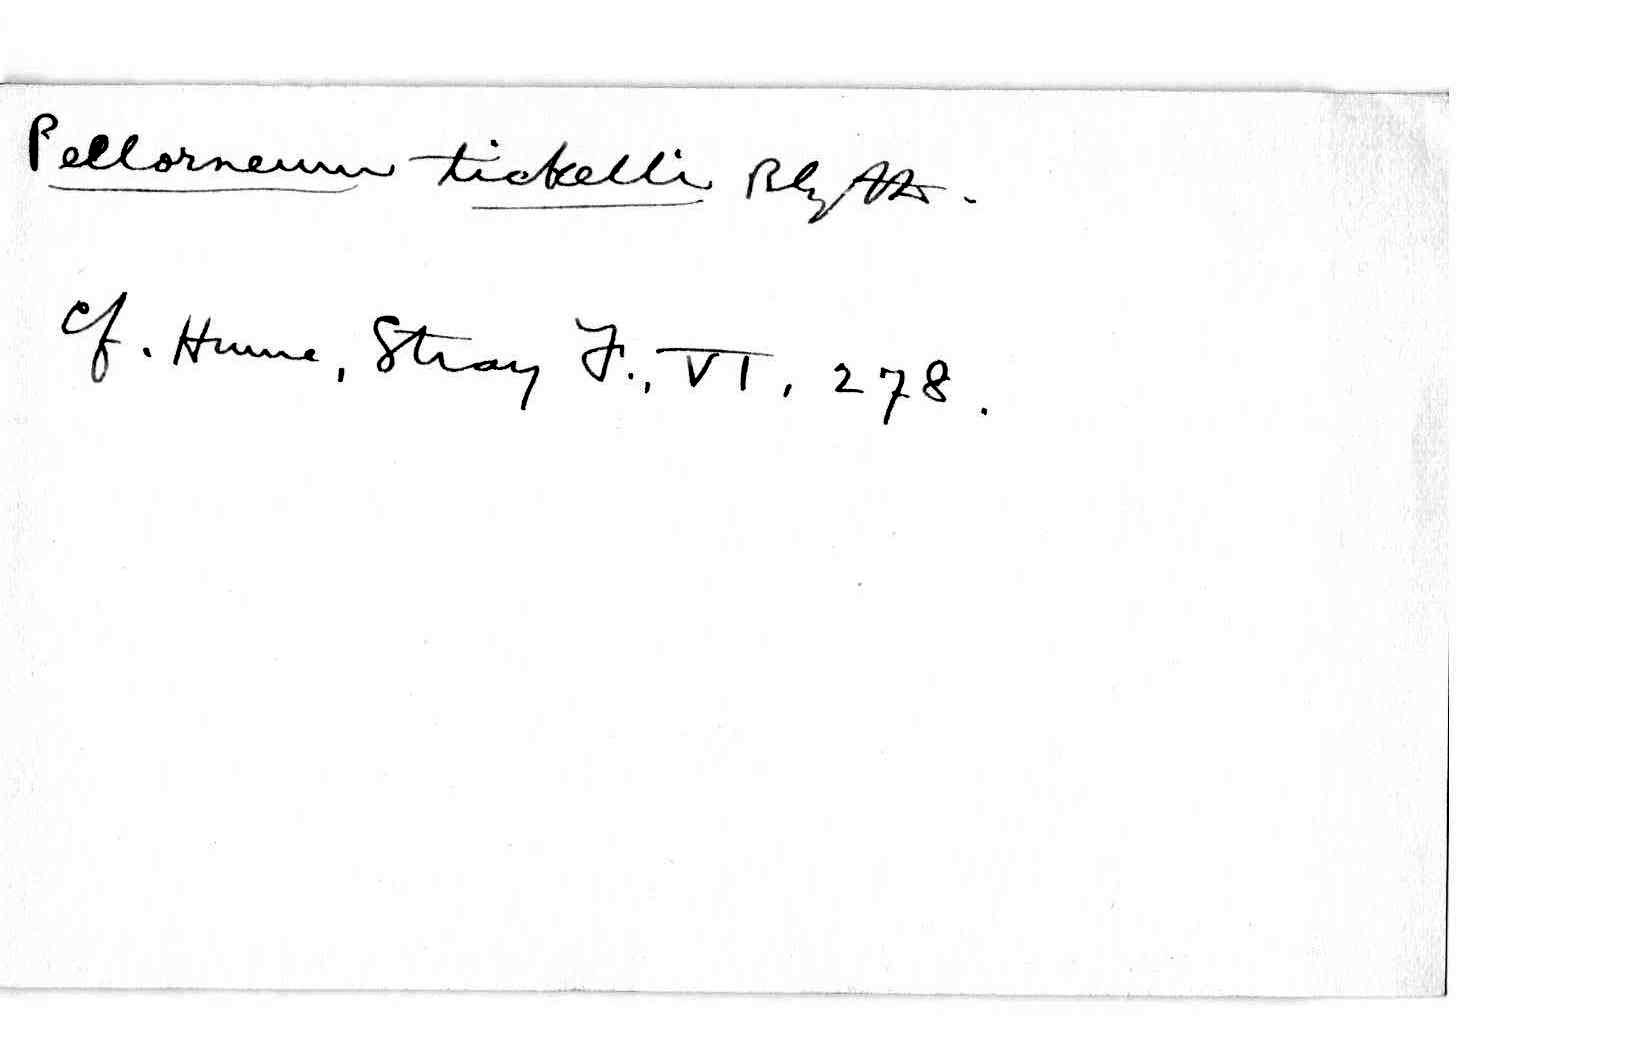 Pellorneum tickelli Blyth.
Cf. Hume, Stray F., VI, 278.